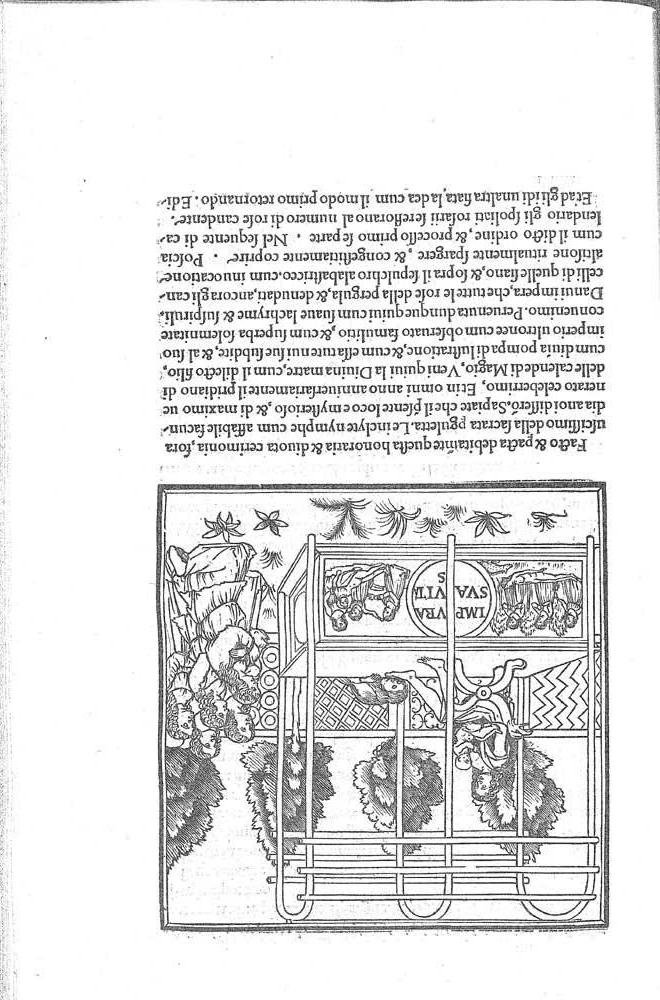 IMP VRA
SVA VIT
S
Facto & pacta debitaméte questa honoraria & diuota cerimonia, fora
uiscissimo della sacrata pguletta. Le inclyte nymphe cum affabile facun-
dia anoi disseró. Sapiate che il p̃sente loco e mysterioso, & di maximo ue
nerato celeberrimo, Et in omni anno anniuersariamente il pridiano di
delle calende di Magio, Veni quiui la Diuina matre, cum il dilecto filio,
cum diuia pompa di lustratione, & cum essa tute nui sue subdite, & al suo
imperio ultronee cum obseruato famulitio, & cum superba solemnitate
conuenimo. Peruenuta dunque quiui cum suaue lachryme & suspiruli,
Da nui impera, che tutte le rose della pergula, & denudati, ancora gli can-
celli di quelle siano, & sopra il sepulchro alabastrico, cum inuocatione
altisone ritualmente spargere, & congestitiamente coprire. Poscia
cum il dicto ordine, & processo primo se parte. Nel sequente di ca-
lendario gli spoliati rosarii refiorano al numero di rose candente.
Et ad gli idi unaltra fiata, la dea cum il modo primo retornando. Edi-